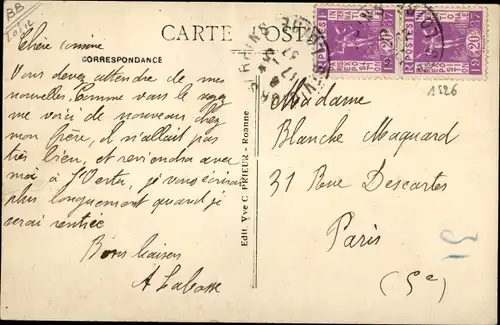 BB
CARTE POSTALE
CORRESPONDANCE
Chère cousine
Vous devez attendre de mes
nouvelles. Comme vous le voyez
me voici de nouveau chez
mon frère, il n'allait pas
très bien, et reviendra avec
moi à Vertu, je vous écrirai
plus longuement quand je
serai rentrée
Bons baisers
A Labasse
Edit. Vve C. PRIEUR - Roanne
POSTES
EXPOSITION INTERNATIONALE
PARIS 1937
20c
POSTES
EXPOSITION INTERNATIONALE
PARIS 1937
20c
1526
Madame
Blanche Maquard
31 Rue Descartes
Paris
(5e)